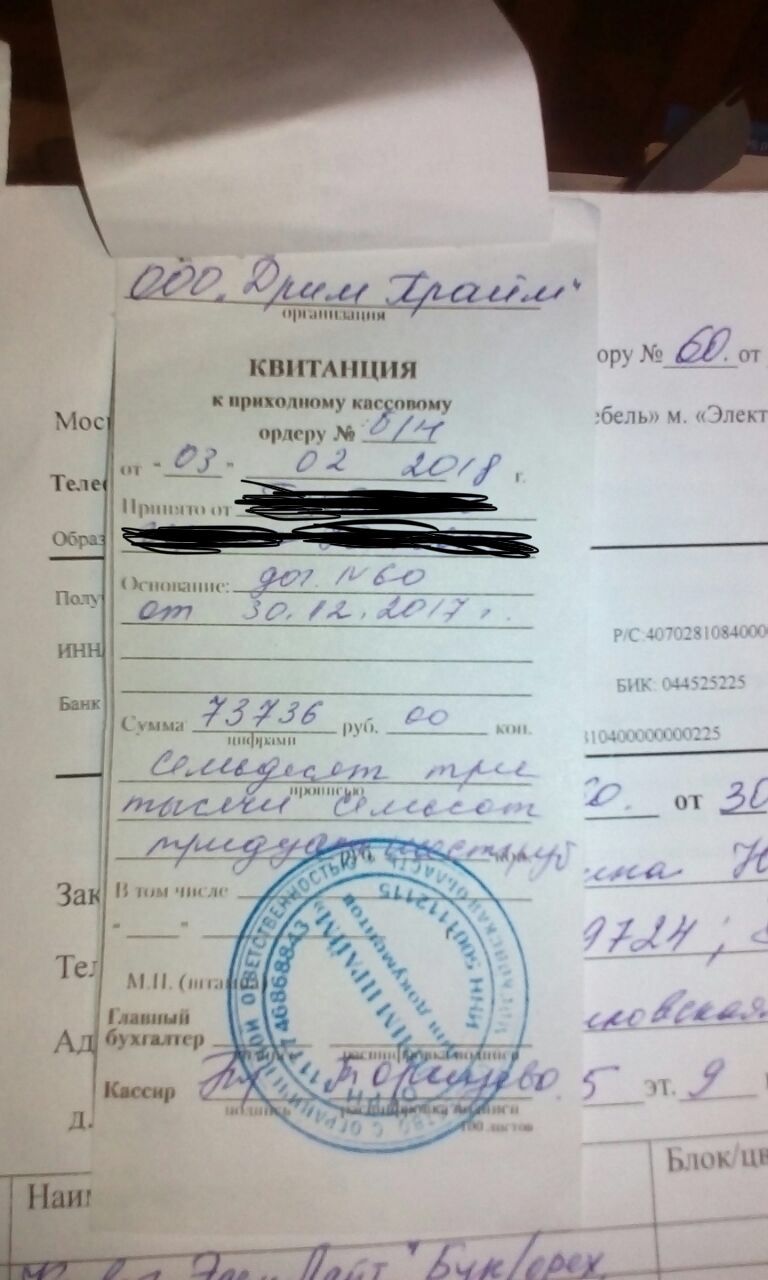 ООО „Дрим Прайм"
организация
КВИТАНЦИЯ
к приходному кассовому
ордеру № б/н
от "03" 02 2018 г.
Принято от
Основание: дог. N60
от 30.12.2017 г.
Сумма 73736 руб. 00 коп.
цифрами
семьдесят три
прописью
тысячи семьсот
тридцать шесть руб
руб. коп.
В том числе
" "
М.П. (штампа)
Главный
бухгалтер
подпись расшифровка подписи
Кассир
подпись расшифровка подписи
100 листов
ору № 60. от
Мос
ебель» м. «Элект
Теле
Образ
Полу
Р/С:4070281084000
ИНН
БИК: 044525225
Банк
310400000000225
от 30
Зак
Тел
9724;
Ад
ковская
5 эт. 9
д.
Блок/цв
Наим
Лайт" Бук/орех
ОГРН 1117746868843
ИНН 5001112115